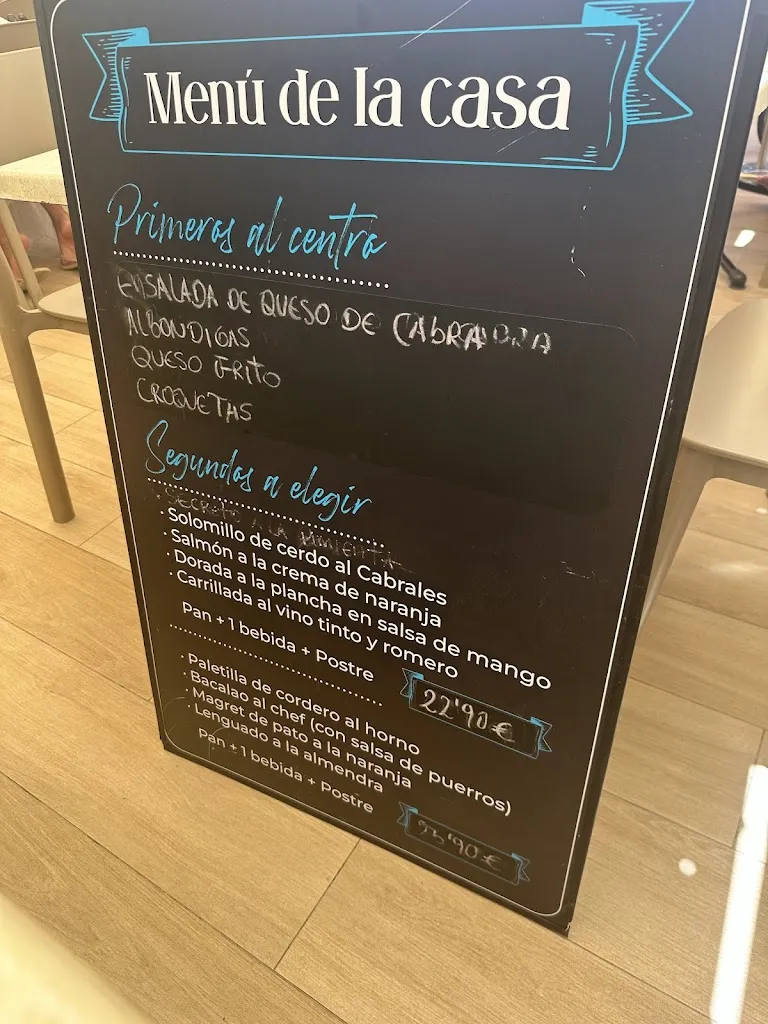 Menú de la casa
Primeros al centro
ENSALADA DE QUESO DE CABRA
ALBONDIGAS
QUESO FRITO
CROQUETAS
Segundos a elegir
SECRETO A LA PIMIENTA
· Solomillo de cerdo al Cabrales
· Salmón a la crema de naranja
· Dorada a la plancha en salsa de mango
· Carrillada al vino tinto y romero
Pan + 1 bebida + Postre
22'90 €
· Paletilla de cordero al horno
· Bacalao al chef (con salsa de puerros)
· Magret de pato a la naranja
· Lenguado a la almendra
Pan + 1 bebida + Postre